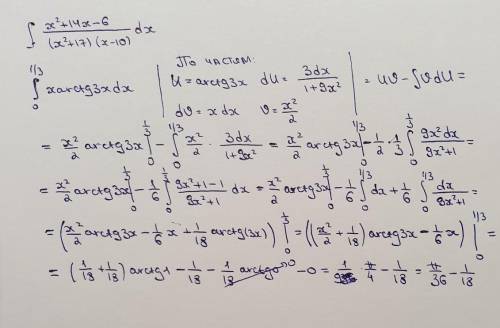 ∫ (x²+14x-6)/((x²+17)(x-10)) dx
По частям:
∫₀^{1/3} x arctg3x dx | U = arctg3x dU = 3dx/(1+9x²) | = UV - ∫VdU =
dV = x dx V = x²/2
= x²/2 arctg3x |₀^{1/3} - ∫₀^{1/3} x²/2 · 3dx/(1+9x²) = x²/2 arctg3x |₀^{1/3} - 1/2 · 1/3 ∫₀^{1/3} 9x²dx/(9x²+1) =
= x²/2 arctg3x |₀^{1/3} - 1/6 ∫₀^{1/3} (9x²+1-1)/(9x²+1) dx = x²/2 arctg3x |₀^{1/3} - 1/6 ∫₀^{1/3} dx + 1/6 ∫₀^{1/3} dx/(9x²+1) =
= (x²/2 arctg3x - 1/6 x + 1/18 arctg(3x)) |₀^{1/3} = ((x²/2 + 1/18) arctg3x - 1/6 x) |₀^{1/3} =
= (1/18 + 1/18) arctg1 - 1/18 - 1/18 arctg0 - 0 = 1/9 · π/4 - 1/18 = π/36 - 1/18